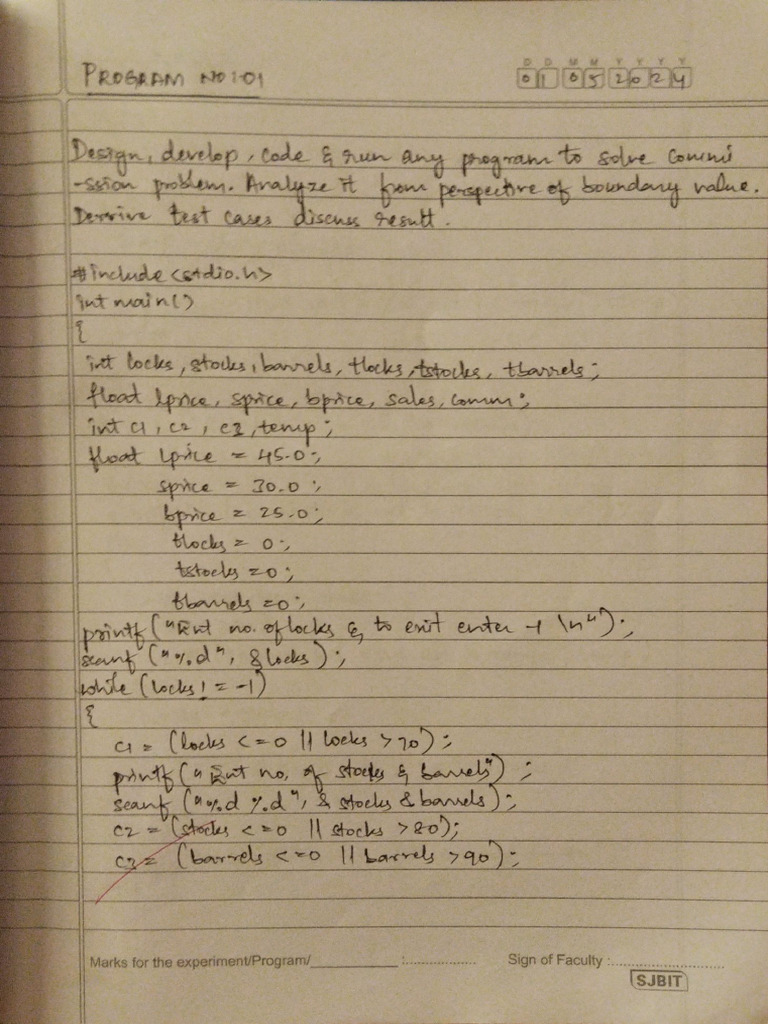 PROGRAM NO:01
D D M M Y Y Y Y
0 1 0 5 2 0 2 4
Design, develop, code & run any program to solve commi
-ssion problem. Analyze it from perspective of boundary value.
Derrive test cases discuss result.
#include <stdio.h>
int main()
{
int locks, stocks, barrels, tlocks, tstocks, tbarrels;
float lprice, sprice, bprice, sales, comm;
int c1, c2, c3, temp;
float lprice = 45.0;
sprice = 30.0;
bprice = 25.0;
tlocks = 0;
tstocks = 0;
tbarrels = 0;
printf("Ent no. of locks & to exit enter -1 \n");
scanf("%d", &locks);
while (locks! = -1)
{
c1 = (locks <= 0 || locks > 70);
printf("Ent no. of stocks & barrels");
scanf("%d %d", & stocks & barrels);
c2 = (stocks <= 0 || stocks > 80);
c3 = (barrels <= 0 || barrels > 90);
Marks for the experiment/Program/_________ :.................. Sign of Faculty :............................
SJBIT